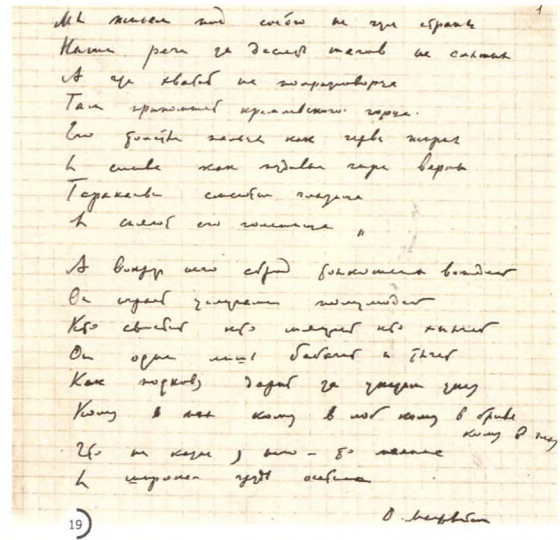 1
Мы живем под собою не чуя страны
Наши речи за десять шагов не слышны
А где хватит на полразговорца
Там припомнят кремлевского горца.
Его толстые пальцы как черви жирны
И слова как пудовые гири верны
Тараканьи смеются глазища
И сияют его голенища
А вокруг него сброд тонкошеих вождей
Он играет услугами полулюдей
Кто свистит кто мяучит кто хнычет
Он один лишь бабачит и тычет
Как подкову дарит за указом указ
Кому в пах кому в лоб кому в бровь
кому в глаз
Что ни казнь у него – то малина
И широкая грудь осетина
О. Мандельштам
19